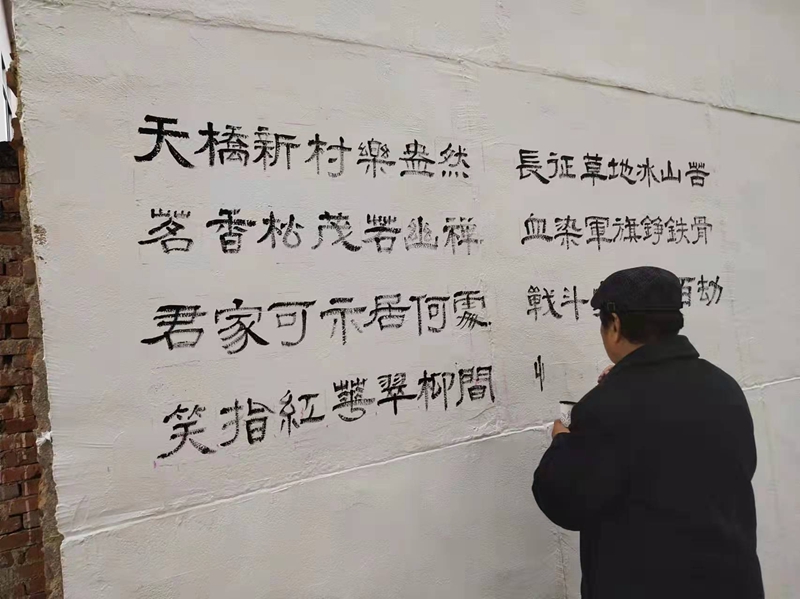 天橋新村樂盎然
茗香松茂若幽禅
君家可示居何處
笑指紅蕚翠柳間
長征草地冰山苦
血染軍旗錚鉄骨
戰斗百劫